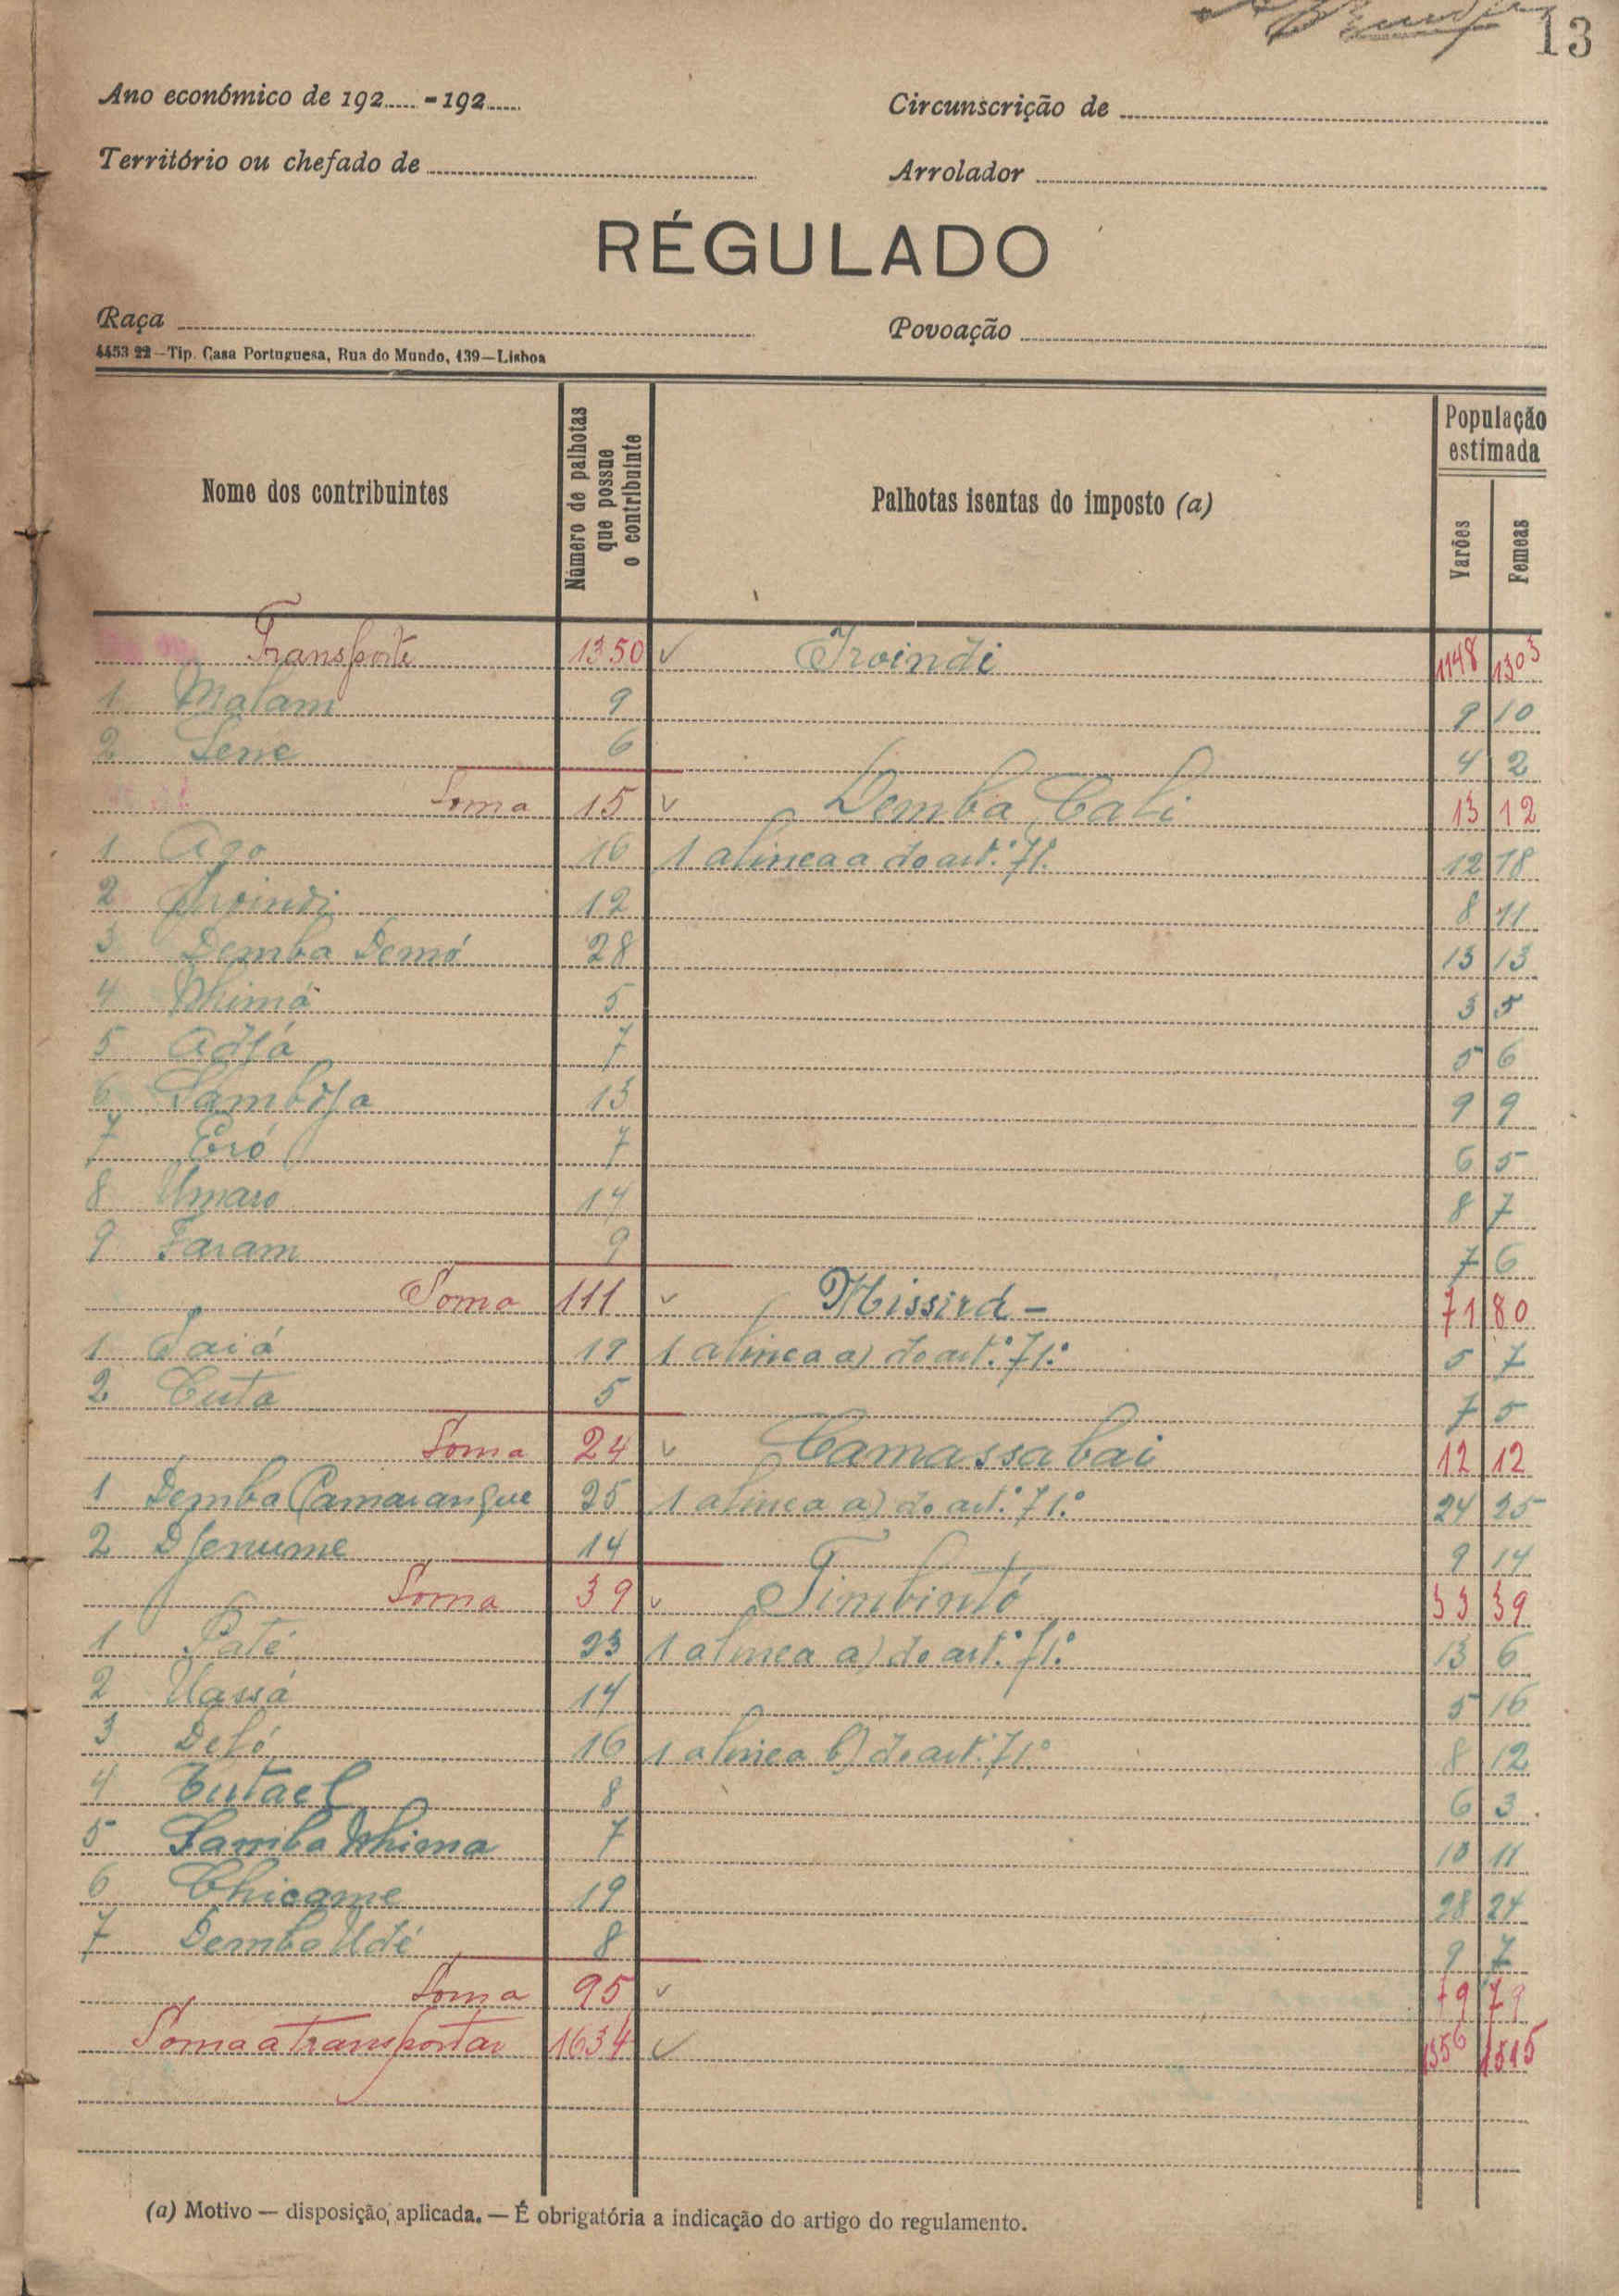 13
Ano económico de 192..... - 192.....
Circunscrição de
Território ou chefado de
Arrolador
RÉGULADO
Raça
Povoação
4453 22—Tip. Casa Portuguesa, Rua do Mundo, 139—Lisboa
Nome dos contribuintes
Número de palhotas que possue o contribuinte
Palhotas isentas do imposto (a)
População estimada
Varões
Femeas
Transporte 1350 ✓ Iroindi 1148 1303
1 Malam 9 9 10
2 Sene 6 4 2
Soma 15 ✓ Demba Cali 13 12
1 Ago 16 1 alinea a do art.º 71.º 12 18
2 Iroindi 12 8 11
3 Demba Demó 28 13 13
4 Nhimá 5 3 5
5 Adjá 7 5 6
6 Sambdja 13 9 9
7 Eró 7 6 5
8 Umaro 14 8 7
9 Faram 9 7 6
Soma 111 ✓ Missirá - 71 80
1 Saiá 19 1 alinea a) do art.º 71.º 5 7
2 Cuta 5 7 5
Soma 24 ✓ Camassabai 12 12
1 Demba Camarangue 25 1 alinea a) do art.º 71.º 24 25
2 Djenume 14 9 14
Soma 39 ✓ Simbintó 33 39
1 Paté 23 1 alinea a) do art.º 71.º 13 6
2 Uassá 14 5 16
3 Deló 16 1 alinea b) do art.º 71.º 8 12
4 Cutael 8 6 3
5 Samba Nhima 7 10 11
6 Chicame 19 28 24
7 Demba Udé 8 9 7
Soma 95 ✓ 79 79
Soma a transportar 1634 ✓ 1356 1515
(a) Motivo — disposição, aplicada. — É obrigatória a indicação do artigo do regulamento.